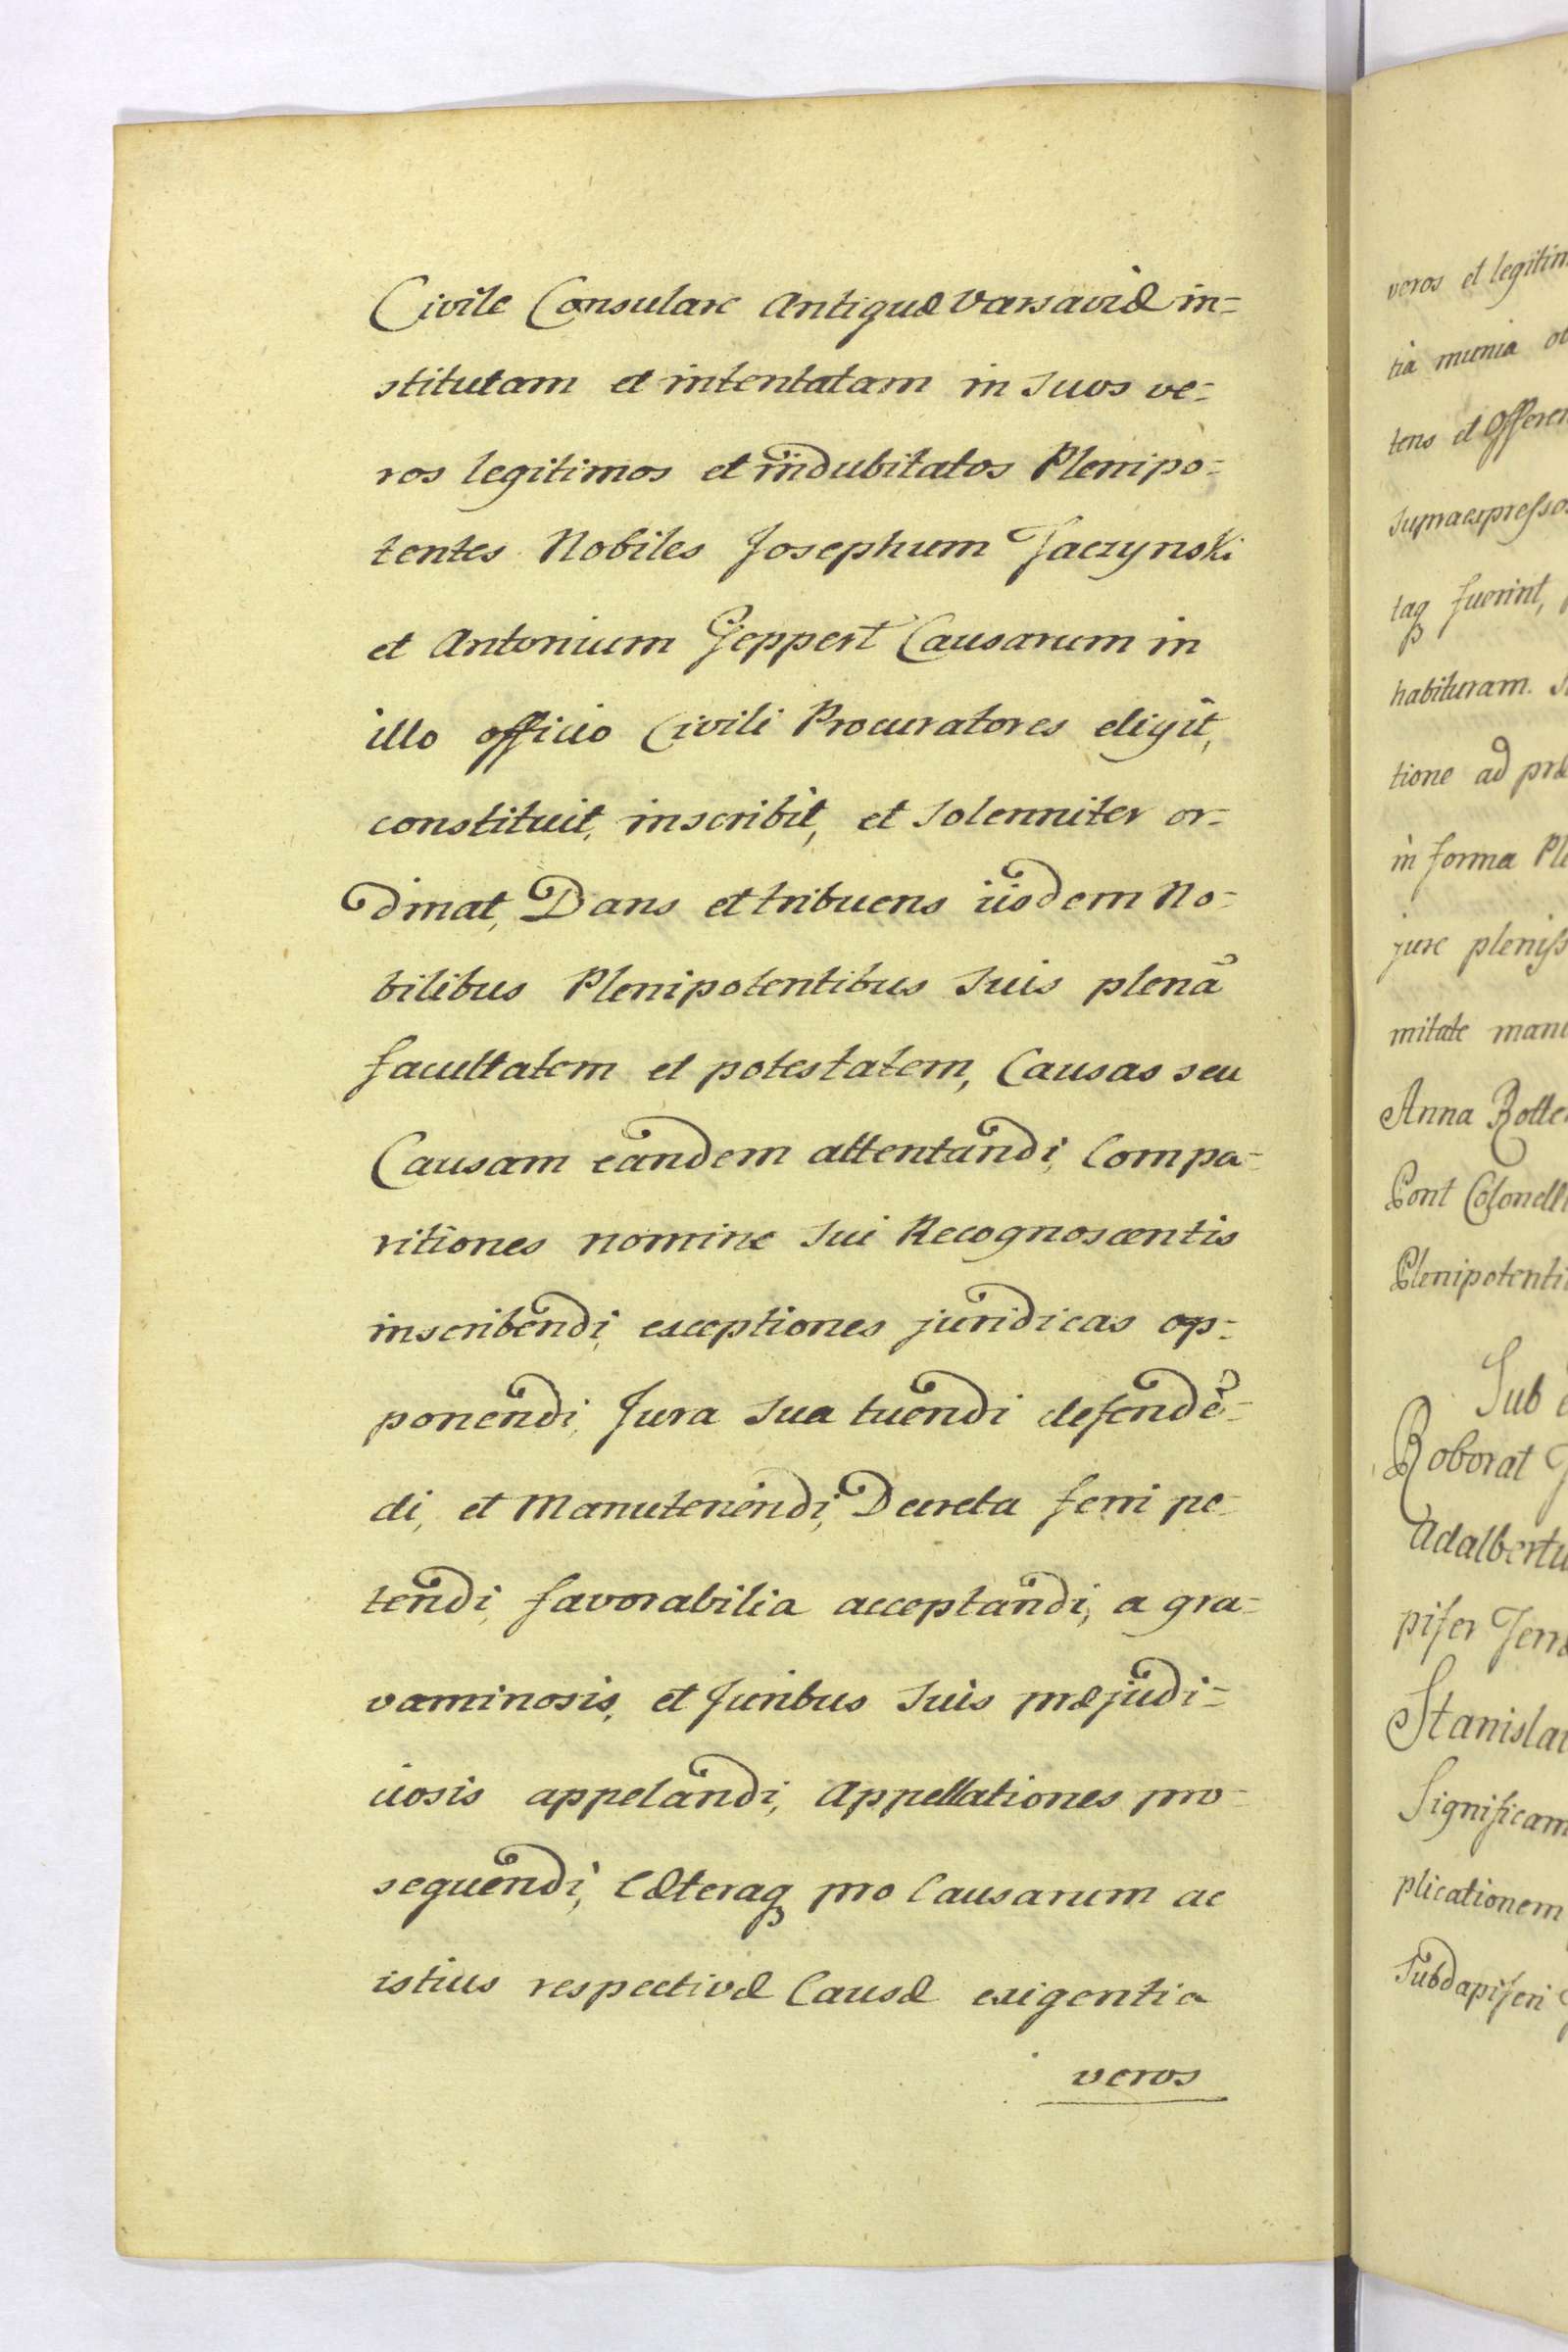 Civile Consulare Antiquæ Varsaviæ in=
stitutam et intentatam in suos ve=
ros legitimos et indubitatos Plenipo=
tentes Nobiles Josephum Jaczynski
et Antonium Geppert Causarum in
illo officio Civili Procuratores eligit,
constituit, inscribit, et Solenniter or=
dinat, Dans et tribuens iisdem No=
bilibus Plenipotentibus Suis plenã
facultatem et potestatem, Causas seu
Causam eandem attentandi, Compa=
ritiones nomine Sui Recognoscentis
inscribendi, exceptiones juridicas op=
ponendi, Jura Sua tuendi defendẽ=
di, et Manutenendi, Decreta ferri pe=
tendi, favorabilia acceptandi, a gra=
vaminosis, et Juribus Suis præjudi=
ciosis appelandi, Appellationes pro=
sequendi, Cæteraq pro Causarum ac
istius respectivæ Causæ exigentia
veros
veros et legitim
tia munia
tens et Offeren
supraexpresso
taq fuerint,
habituram.
tione ad præ
in forma Ple
jure pleniss
mitate manu
Anna Rotte
Pont Colonell
Plenipotenti
Sub
Roborat
Adalbertu
pifer Terræ
Stanislau
Significam
plicationem
Subdapiferi